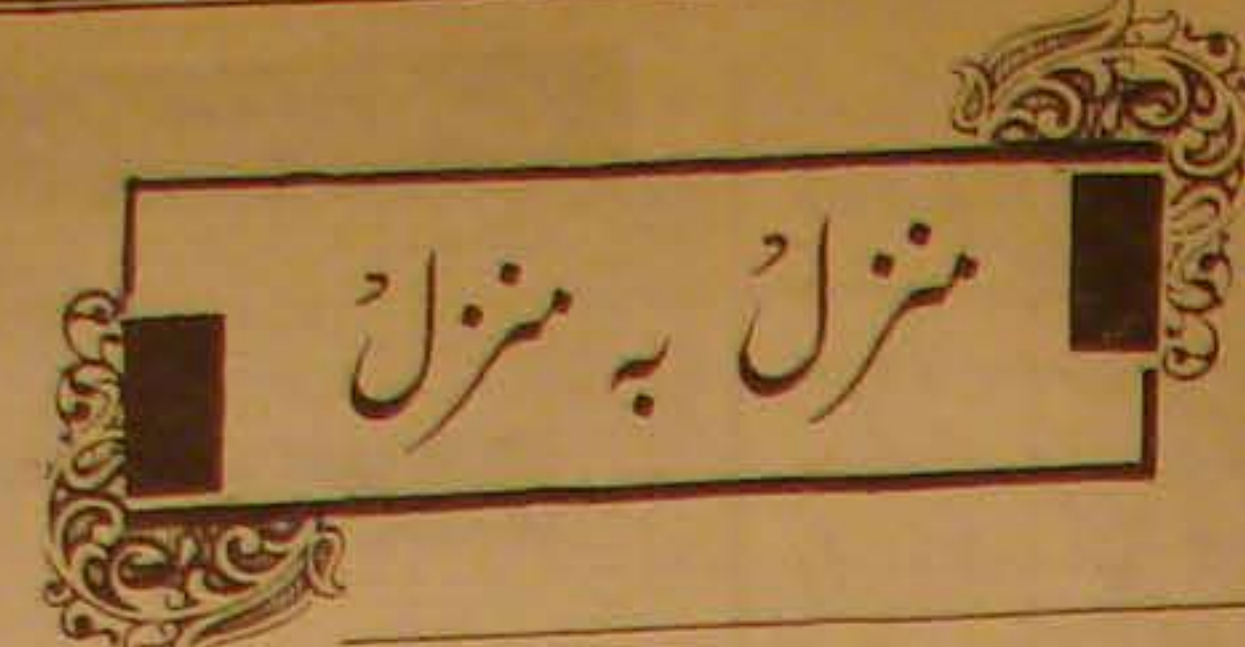 منزلُ بہ منزلُ